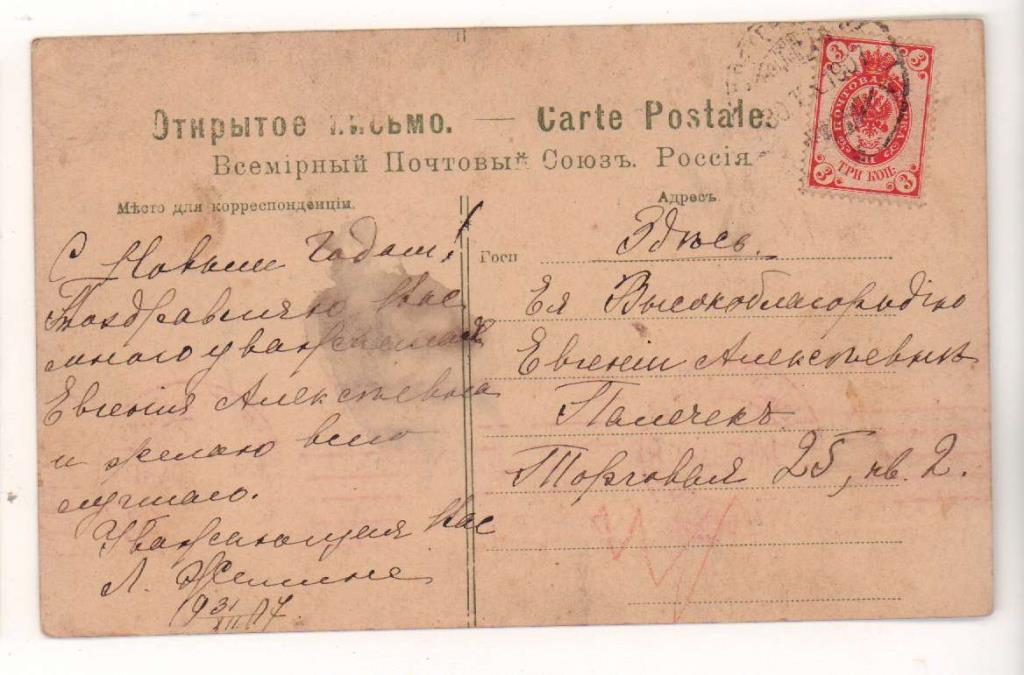 Открытое письмо. — Carte Postale.
Всемірный Почтовый Союзъ. Россія
Мѣсто для корреспонденціи.
С Новым годом!
Поздравляю Вас
многоуважаемая
Евгенія Алексѣевна
и желаю всего
лучшаго.
Уважающая Вас
Л.
19 31/XII 07.
Адресъ
Госп
Здѣсь.
Ея Высокоблагородію
Евгеніи Алексѣевнѣ
Палечекъ
Торговая 25, кв. 2.
3 3
ПОЧТОВАЯ МАРКА
ТРИ КОП.
3 3
1907